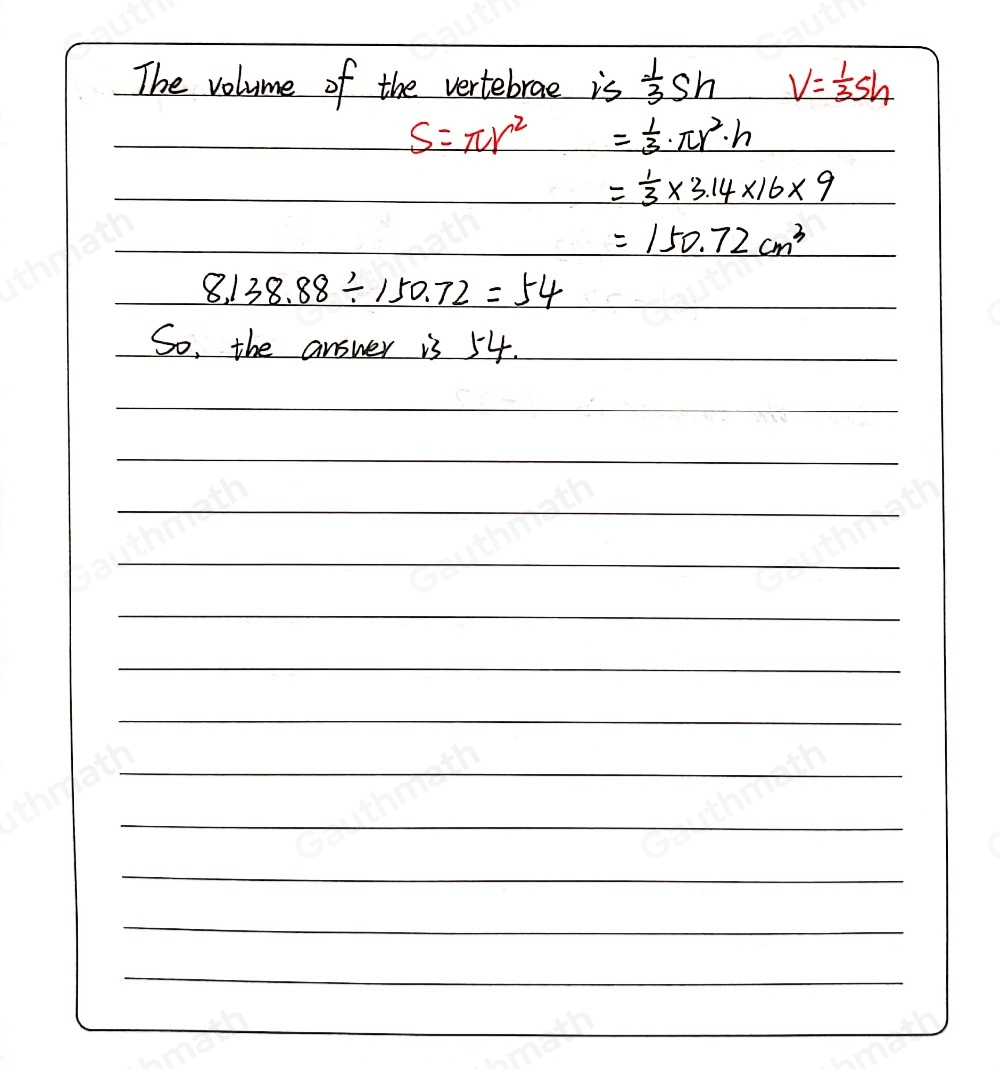 The volume of the vertebrae is 1/3 Sh V=1/3 Sh
S=πr² = 1/3 · πr² · h
= 1/3 × 3.14 × 16 × 9
= 150.72 cm³
8,138.88 ÷ 150.72 = 54
So, the answer is 54.
Gauthmath